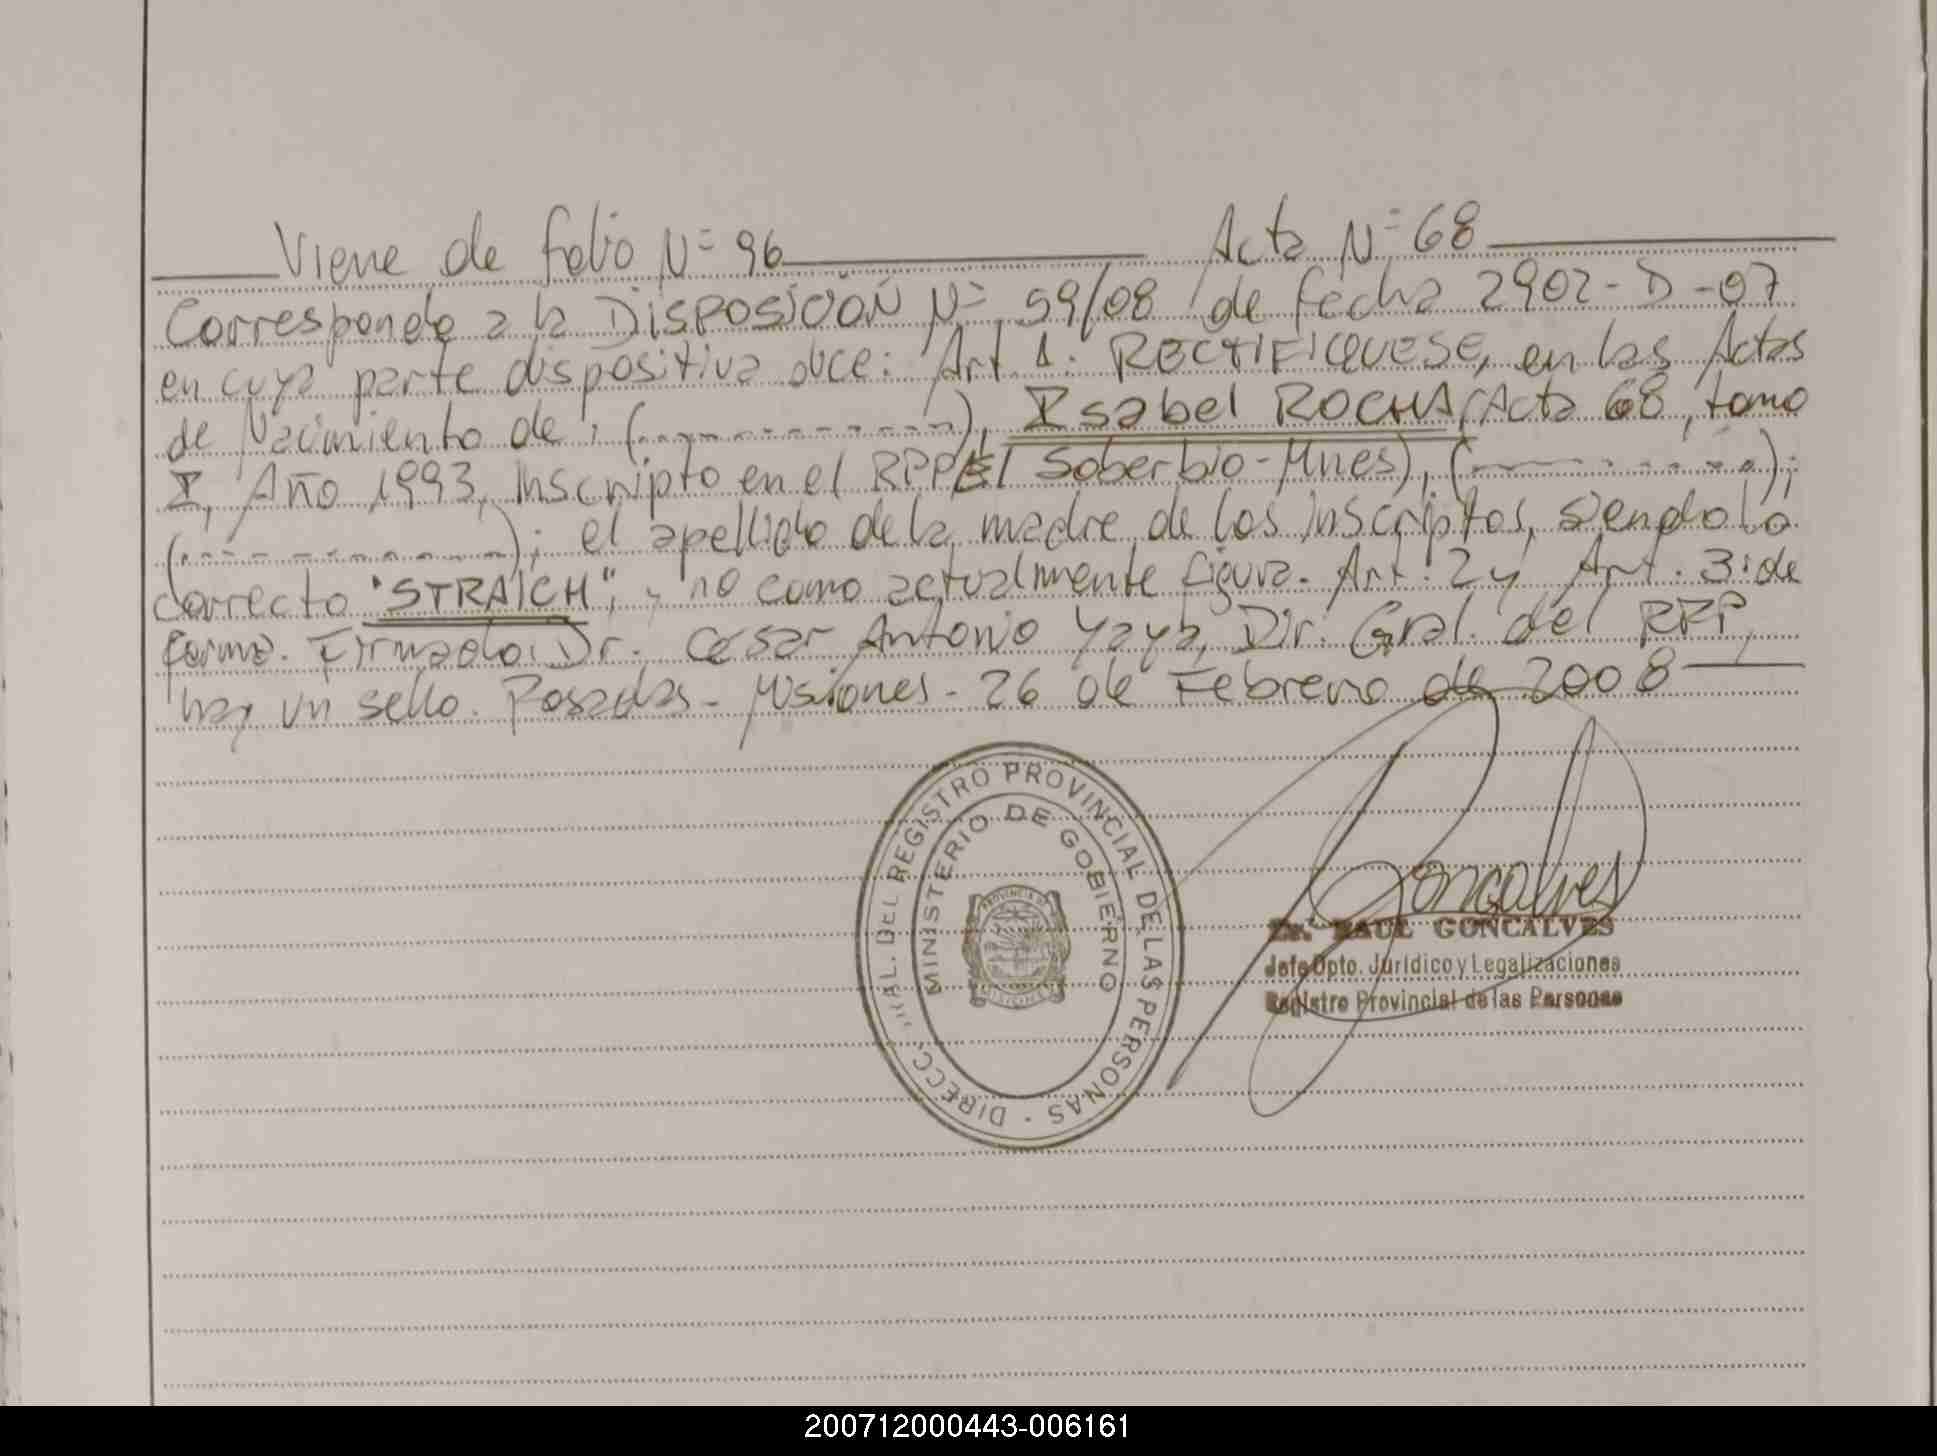 Viene de folio Nº 96 Acta Nº 68
Corresponde a la DISPOSICIÓN Nº 59/08 de fecha 2902-D-07
en cuya parte dispositiva dice: Art 1: RECTIFIQUESE, en las Actas
de Nacimiento de: (------------), Isabel ROCHA (Acta 68, tomo
I, Año 1993, inscripto en el RPP El Soberbio-Mnes), (------------);
(------------); el apellido de la madre de los inscriptos, siendo lo
correcto "STRAICH"; y no como actualmente figura. Art. 2 y Art. 3: de
forma. Firmado: Dr. Cesar Antonio Yaya, Dir. Gral. del RPP,
hay un sello. Posadas - Misiones - 26 de Febrero de 2008
DIRECC. DEL REGISTRO PROVINCIAL DE LAS PERSONAS
MINISTERIO DE GOBIERNO
PROVINCIA DE
MISIONES
Goncalves
Dr. RAUL GONCALVES
Jefe Dpto. Jurídico y Legalizaciones
Registro Provincial de las Personas
200712000443-006161